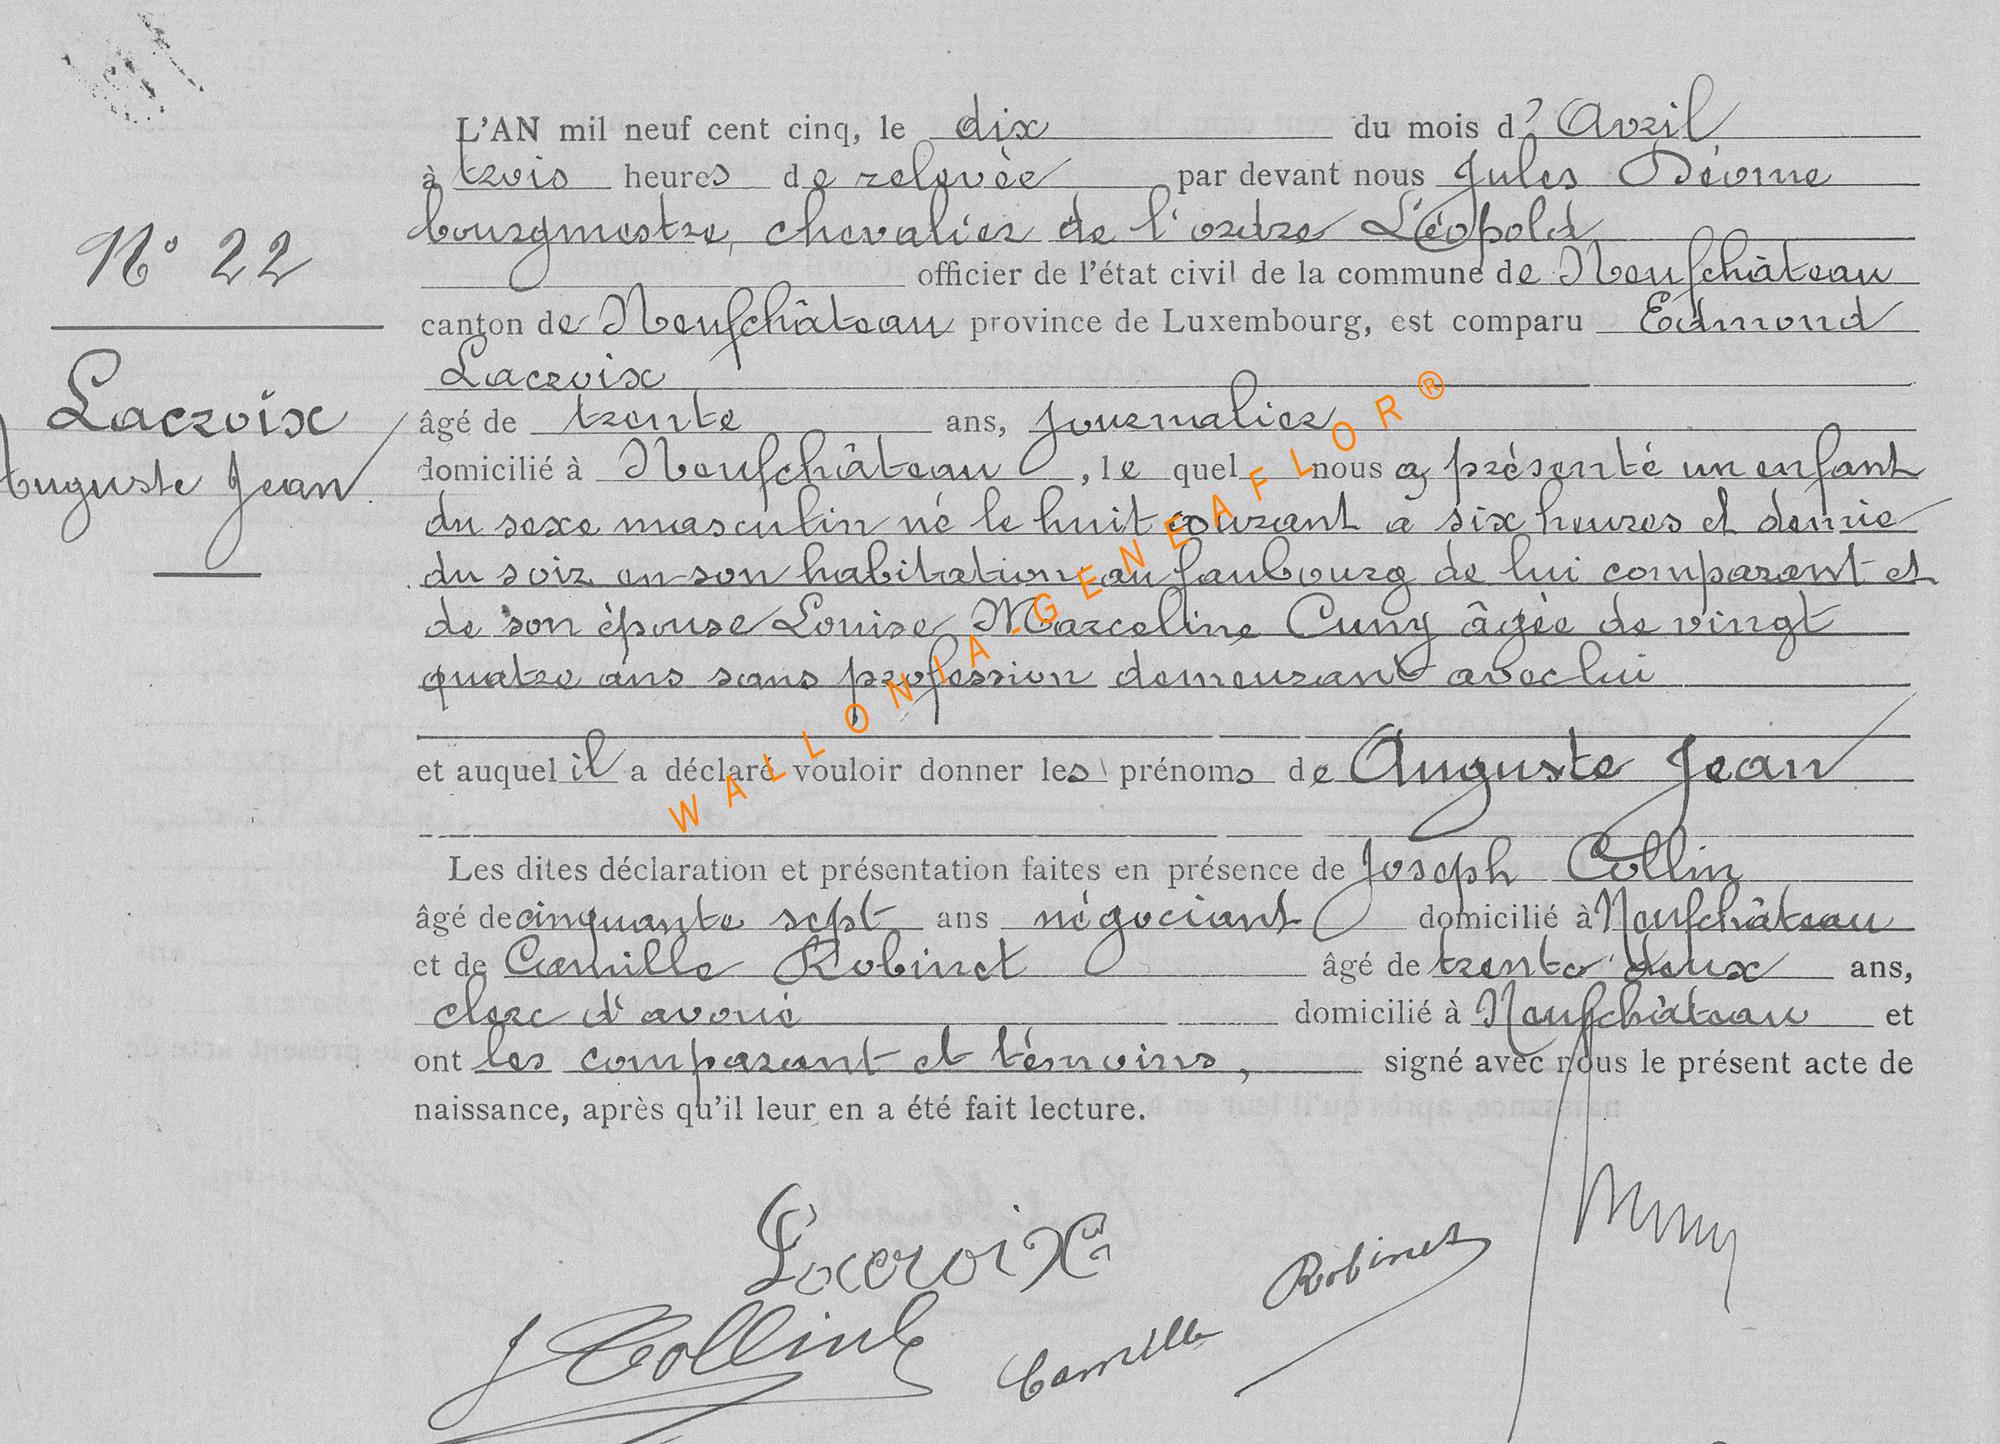 L'AN mil neuf cent cinq, le dix du mois d' Avril
à trois heures de relevée par devant nous Jules
bourgmestre, chevalier de l'ordre Léopold
officier de l'état civil de la commune de Neufchâteau
canton de Neufchâteau province de Luxembourg, est comparu Edmond
Lacroix
âgé de trente ans, journalier
domicilié à Neufchâteau, le quel nous a présenté un enfant
du sexe masculin né le huit courant a six heures et demie
du soir en son habitation au faubourg de lui comparant et
de son épouse Louise Marceline Cuny âgée de vingt
quatre ans sans profession demeurant avec lui
et auquel il a déclaré vouloir donner les prénoms de Auguste Jean
Les dites déclaration et présentation faites en présence de Joseph Collin
âgé de cinquante sept ans négociant domicilié à Neufchâteau
et de Camille Robinet âgé de trente deux ans,
clerc d'avoué domicilié à Neufchâteau et
ont les comparant et témoins, signé avec nous le présent acte de
naissance, après qu'il leur en a été fait lecture.
N° 22
Lacroix
Auguste Jean
WALLONIA-GENEAFLOR®
Lacroix
J Collin
Camille Robinet